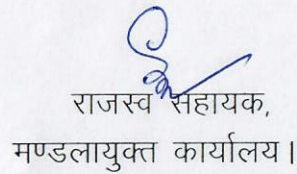 राजस्व सहायक,
मण्डलायुक्त कार्यालय।